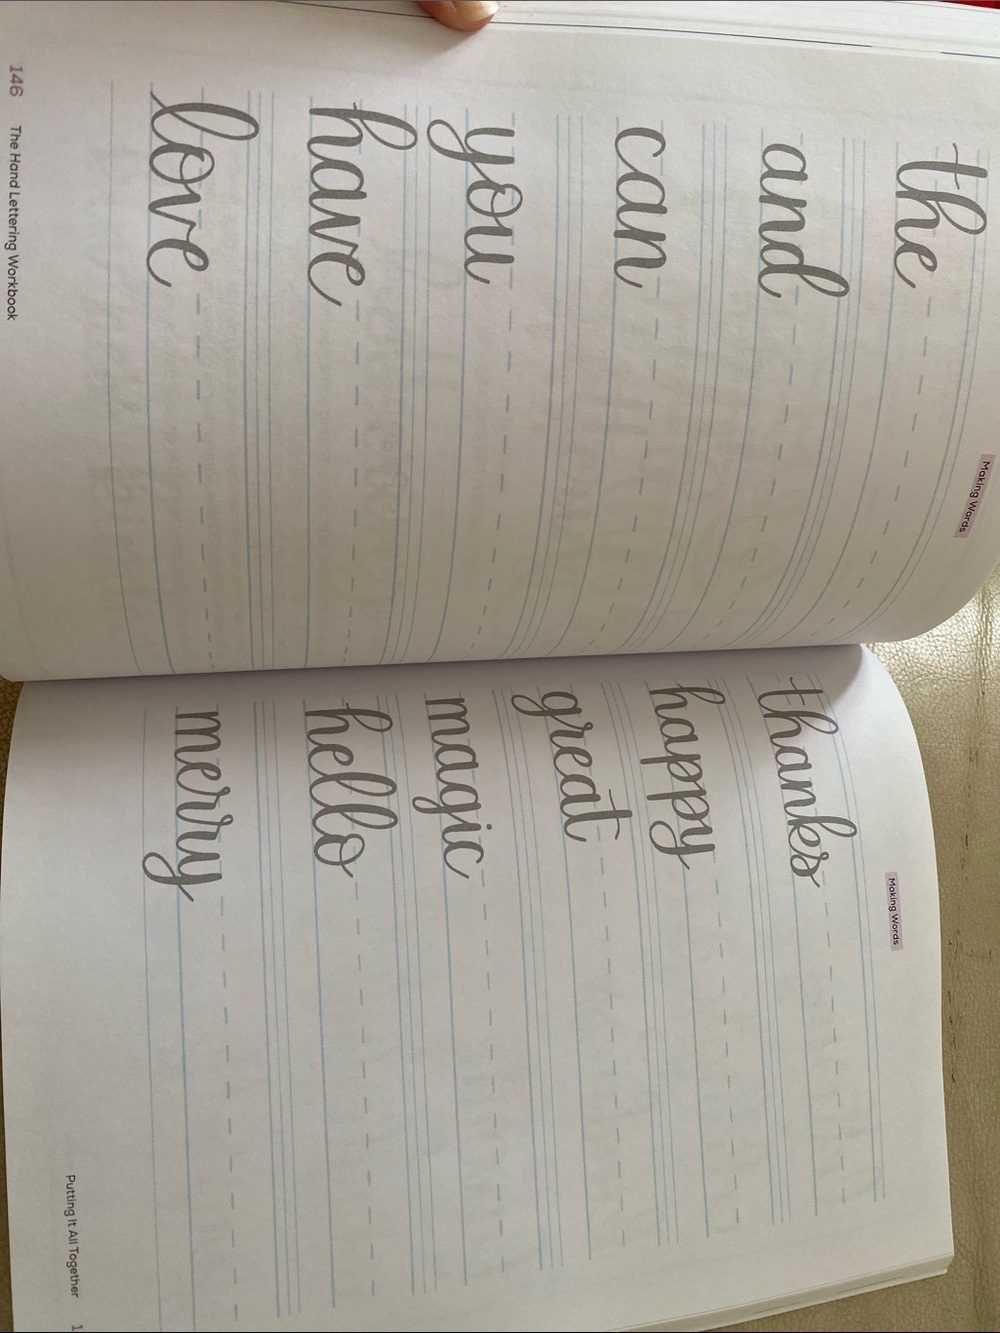 Making Words
the
and
can
you
have
love
146 The Hand Lettering Workbook
Making Words
thanks
happy
great
magic
hello
merry
Putting It All Together